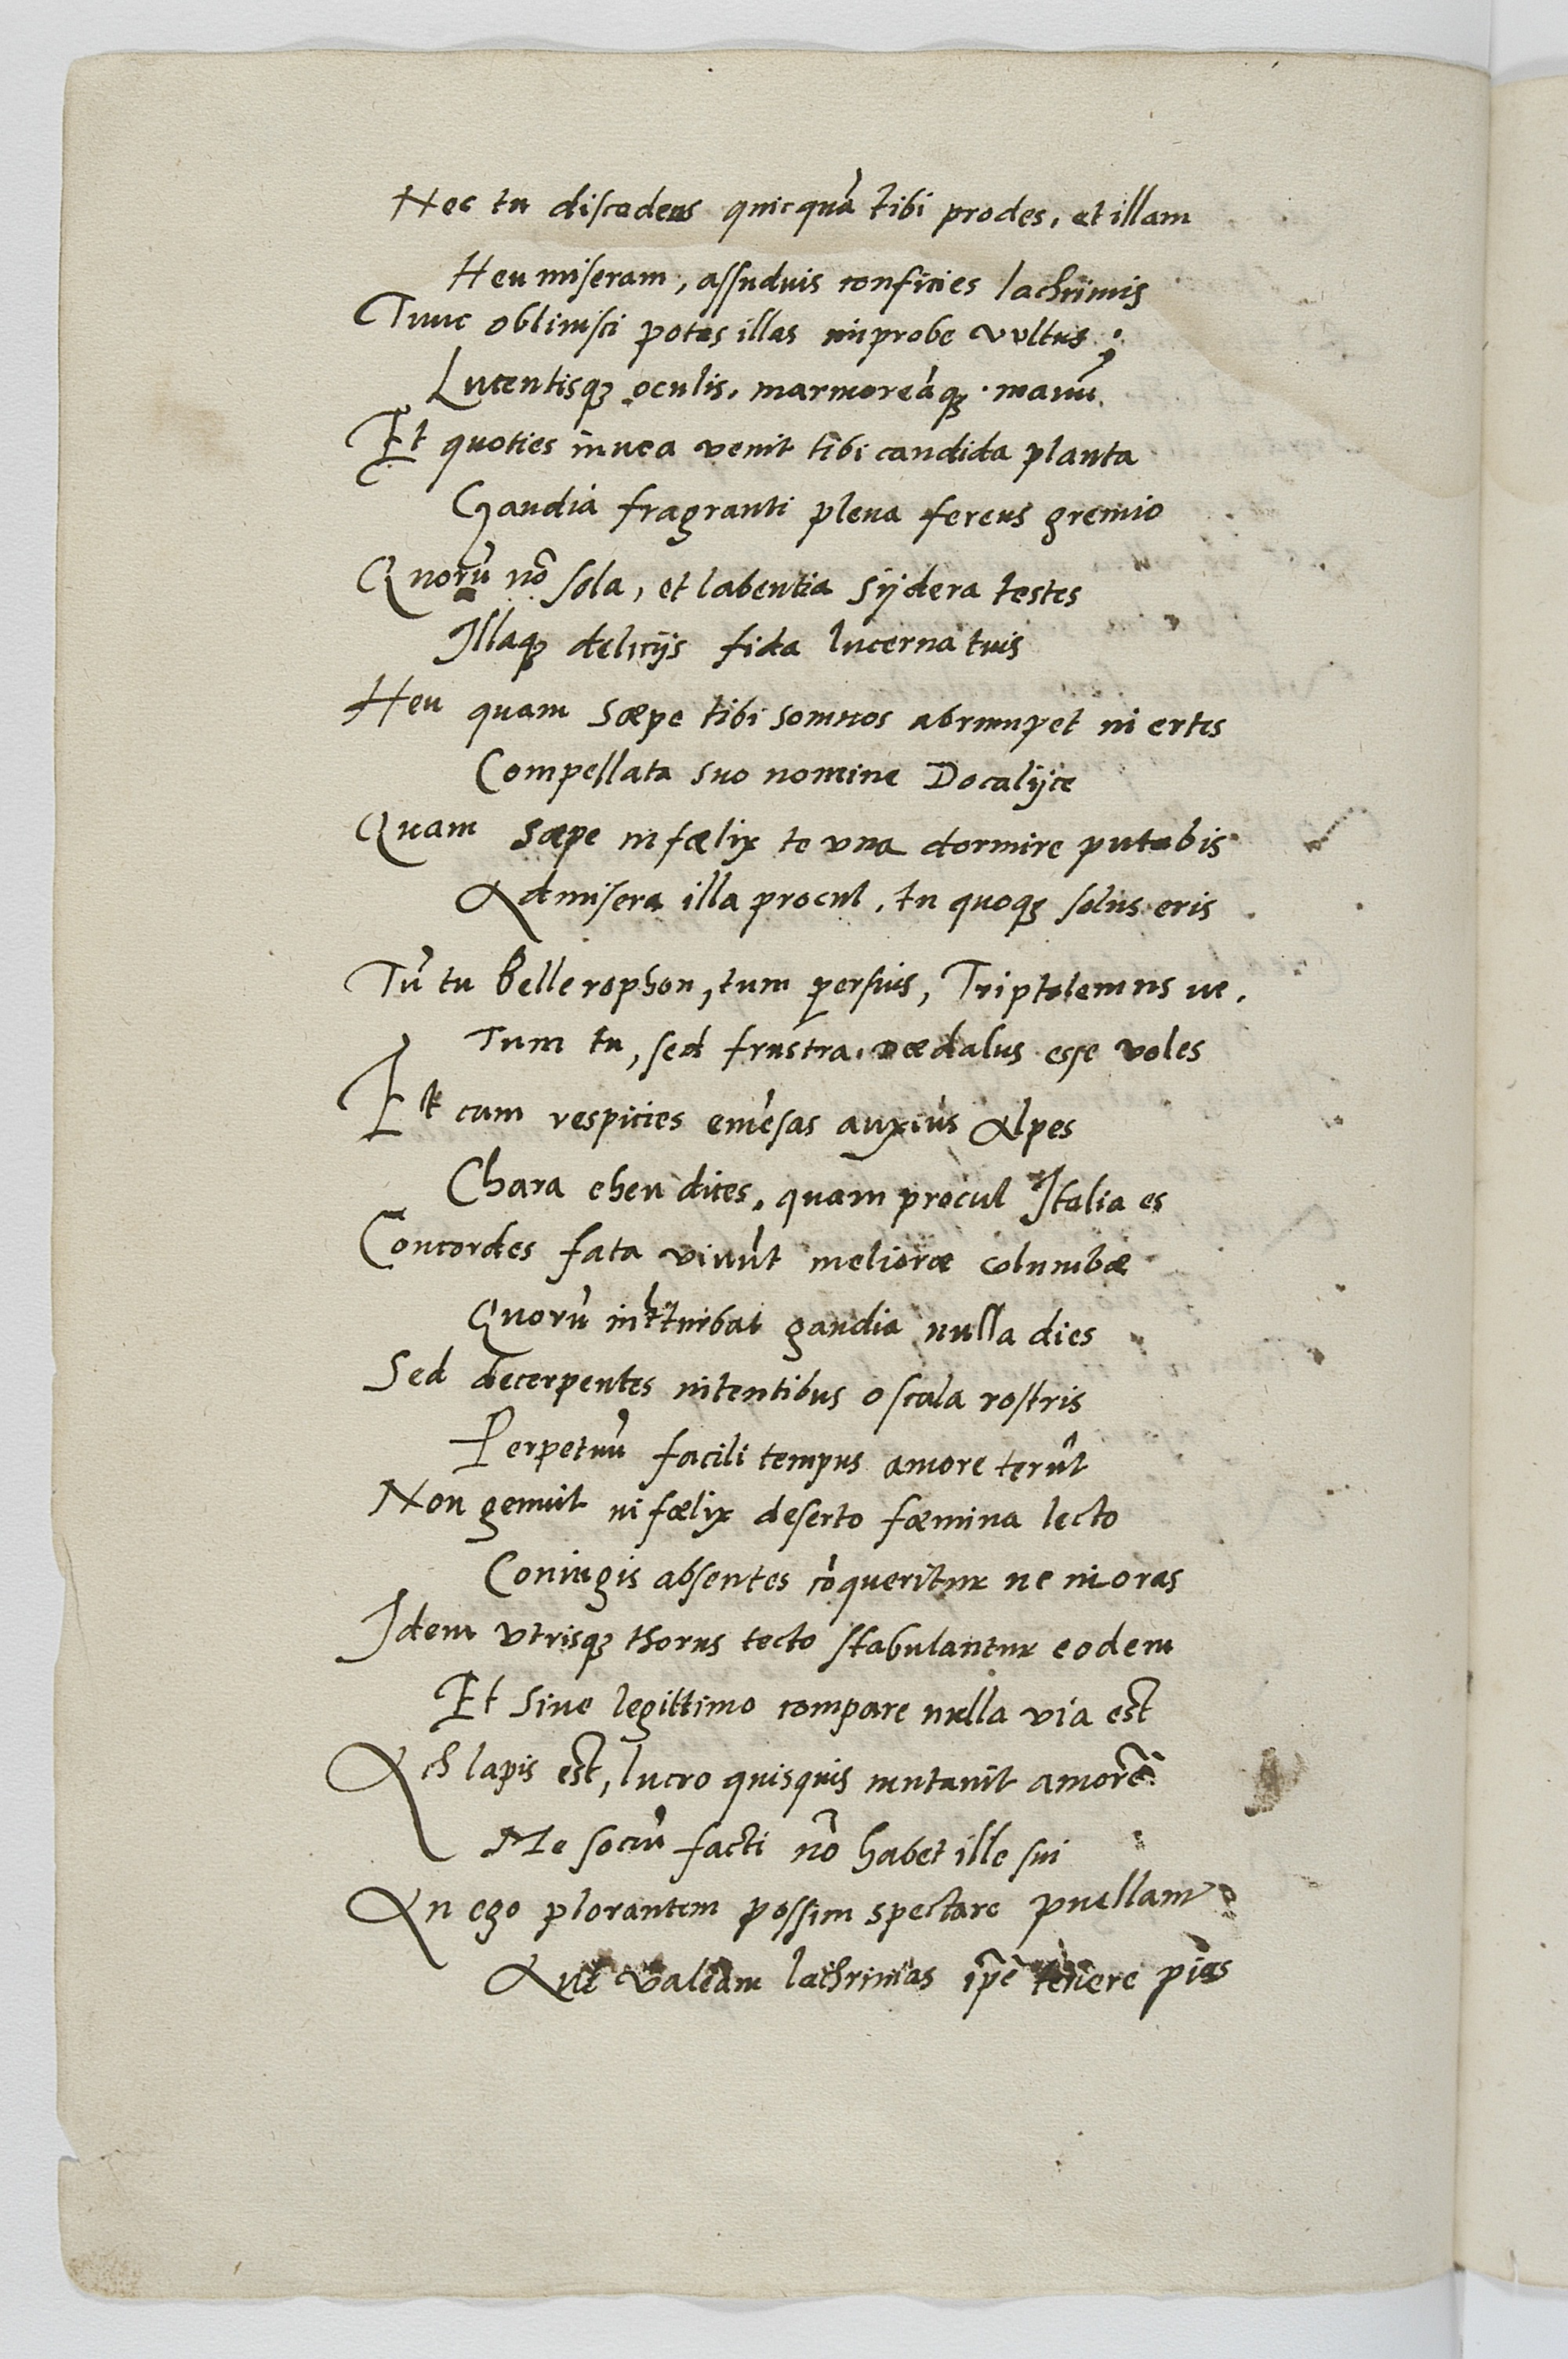 Nec tu discedens quicquā tibi prodes, et illam
Heu miseram, assuduis conficies lachrimis
Tunc obliuisci potes illas improbe vultus;
Lucentisq3 oculis, marmoreāq3 manū.
Et quoties niuea venit tibi candida planta
Gaudia fragranti plena ferens gremio
Quorū nō sola, et labentia Sÿdera testes
Illaq3 delicijs fida lucerna tuis
Heu quam sæpe tibi somnos abrumpet inertes
Compellata suo nomine Docalÿce
Quam sæpe infœlix te vna dormire putabis
Ad misera illa procul, tu quoq3 solus eris
Tū tu Bellerophon, tum perseus, Triptolemus ue,
Tum tu, sed frustra, Dædalus esse voles
Et cum respicies emēsas anxius Alpes
Chara eheu dices, quam procul Italia es
Concordes fata viuūt meliore columbæ
Quorū inturbat gaudia nulla dies
Sed decerpentes nitentibus oscala rostris
Perpetuū facili tempus amore terūt
Non gemuit infœlix deserto fœmina lecto
Coniugis absentes cōqueritur ne moras
Idem vtrisq3 thorus tecto stabulantur eodem
Et sine legittimo compare nulla via est
Ach lapis est, lucro quisquis mutauit amorē
Me sociū facti nō habet ille sui
An ego plorantem possim spectare puellam
Aut valeam lachrimas ip̄e tenere pias